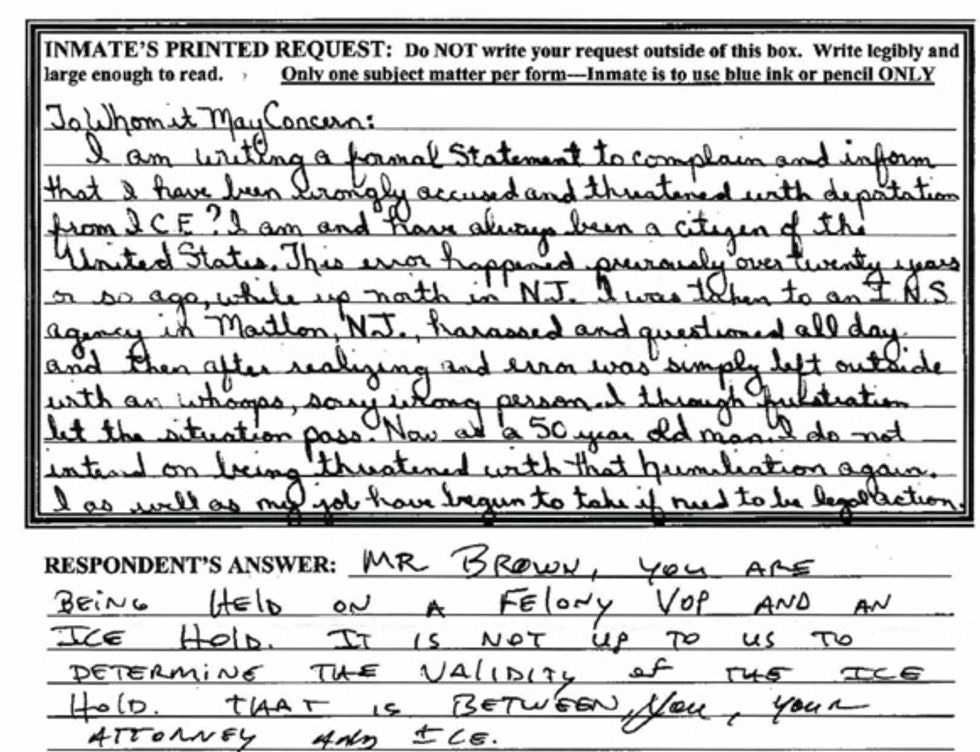 INMATE'S PRINTED REQUEST: Do NOT write your request outside of this box. Write legibly and
large enough to read. Only one subject matter per form---Inmate is to use blue ink or pencil ONLY
To Whom it May Concern:
I am writing a formal Statement to complain and inform
that I have been wrongly accused and threatened with deportation
from I C E? I am and have always been a citizen of the
United States. This error happened previously over twenty years
or so ago, while up north in N.J. I was taken to an I.N.S
agency in Marlton, N.J., harassed and questioned all day
and then after realizing and error was simply left outside
with an whoops, sorry wrong person. I through fustration
let the situation pass. Now as a 50 year old man I do not
intend on being threatened with that humiliation again.
I as well as my job have begun to take if need to be legal action.
RESPONDENT'S ANSWER: MR BROWN, YOU ARE
BEING HELD ON A FELONY VOP AND AN
ICE HOLD. IT IS NOT UP TO US TO
DETERMINE THE VALIDITY of THE ICE
HOLD. THAT IS BETWEEN YOU, YOUR
ATTORNEY AND ICE.